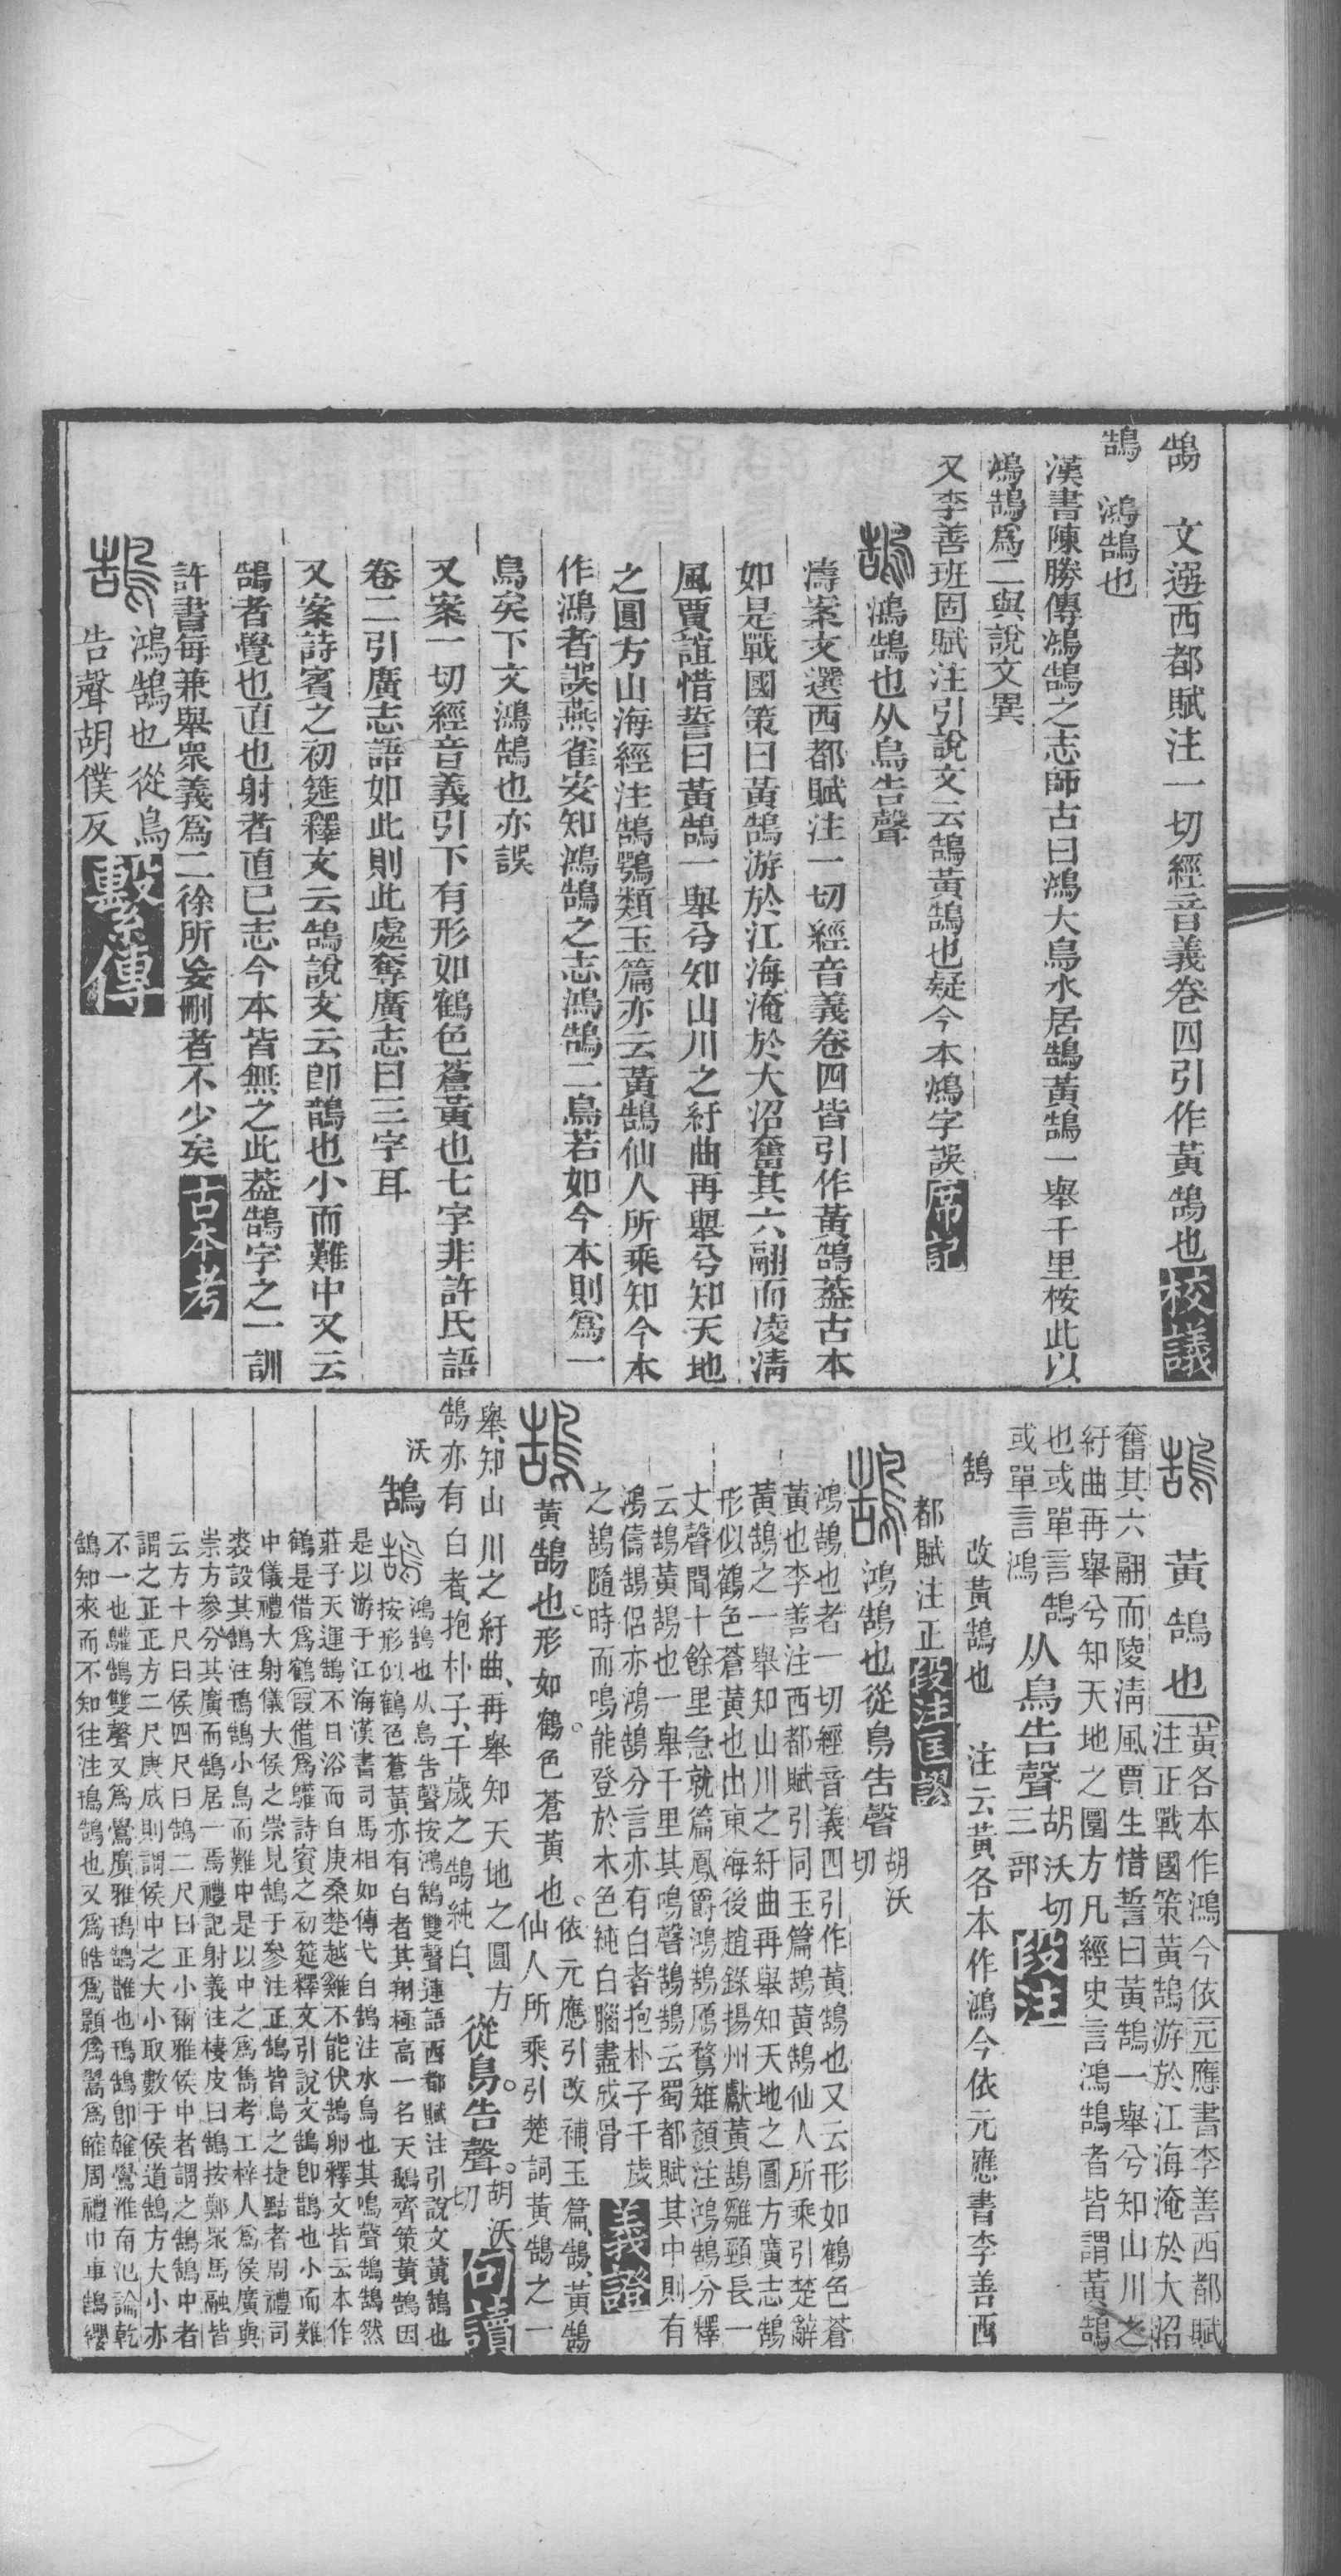 鵠　文選西都賦注一切經音義卷四引作黃鵠也校議
鵠　鴻鵠也
漢書陳勝傳鴻鵠之志師古曰鴻大鳥水居鵠黃鵠一舉千里桉此以
鴻鵠爲二與說文異
又李善班固賦注引說文云鵠黃鵠也疑今本鴻字誤席記
鵠鴻鵠也从鳥告聲
濤案文選西都賦注一切經音義卷四皆引作黃鵠葢古本
如是戰國策曰黃鵠游於江海淹於大沼奮其六翮而凌淸
風賈誼惜誓曰黃鵠一舉兮知山川之紆曲再舉兮知天地
之圓方山海經注鵠鶚類玉篇亦云黃鵠仙人所乘知今本
作鴻者誤燕雀安知鴻鵠之志鴻鵠二鳥若如今本則爲一
鳥矣下文鴻鵠也亦誤
又案一切經音義引下有形如鶴色蒼黃也七字非許氏語
卷二引廣志語如此則此處奪廣志曰三字耳
又案詩賓之初筵釋文云鵠說文云卽鵲也小而難中又云
鵠者覺也直也射者直已志今本皆無之此葢鵠字之一訓
許書每兼舉眾義爲二徐所妄刪者不少矣古本考
鵠鴻鵠也從鳥
告聲胡僕反繫傳
鵠　黃鵠也黃各本作鴻今依元應書李善西都賦
注正戰國策黃鵠游於江海淹於大沼
奮其六翮而陵淸風賈生惜誓曰黃鵠一舉兮知山川之
紆曲再舉兮知天地之圜方凡經史言鴻鵠者皆謂黃鵠
也或單言鵠
或單言鴻从鳥告聲胡沃切
三部段注
鵠　改黃鵠也　注云黃各本作鴻今依元應書李善西
都賦注正段注匡謬
鵠鴻鵠也從鳥告聲胡沃
切
鴻鵠也者一切經音義四引作黃鵠也又云形如鶴色蒼
黃也李善注西都賦引同玉篇鵠黃鵠仙人所乘引楚辭
黃鵠之一舉知山川之紆曲再舉知天地之圓方廣志鵠
形似鶴色蒼黃也出東海後趙錄揚州獻黃鵠雛頸長一
丈聲聞十餘里急就篇鳳爵鴻鵠鴈鶩雉顏注鴻鵠分釋
云鵠黃鵠也一舉千里其鳴聲鵠鵠云蜀都賦其中則有
鴻儔鵠侶亦鴻鵠分言亦有白者抱朴子千歲
之鵠隨時而鳴能登於木色純白腦盡成骨義證
鵠黃鵠也形如鶴色蒼黃也依元應引改補玉篇鵠黃鵠
仙人所乘引楚詞黃鵠之一
舉知山川之紆曲再舉知天地之圓方
鵠亦有白者抱朴子千歲之鵠純白從鳥告聲胡沃
切句讀
沃鵠鵠鴻鵠也从鳥告聲按鴻鵠雙聲連語西都賦注引說文黃鵠也
按形似鶴色蒼黃亦有白者其翔極高一名天鵝齊策黃鵠因
是以游于江海漢書司馬相如傳弋白鵠注水鳥也其鳴聲鵠鵠然
莊子天運鵠不日浴而白庚桑楚越雞不能伏鵠卵釋文皆云本作
鶴是借爲鶴叚借爲鸛詩賓之初筵釋文引說文鵠卽鵲也小而難
中儀禮大射儀大侯之崇見鵠于參注正鵠皆鳥之捷黠者周禮司
裘設其鵠注鳱鵠小鳥而難中是以中之爲雋考工梓人爲侯廣與
崇方參分其廣而鵠居一焉禮記射義注棲皮曰鵠按鄭眾馬融皆
云方十尺曰侯四尺曰鵠二尺曰正小爾雅侯中者謂之鵠鵠中者
謂之正正方二尺庚成則謂侯中之大小取數于侯道鵠方大小亦
不一也鸛鵠雙聲又爲鷽廣雅鳱鵠鵲也鳱鵠卽雗鷽淮南氾論乾
鵠知來而不知往注鳱鵠也又爲皓爲顥爲翯爲㿥周禮巾車鵠纓